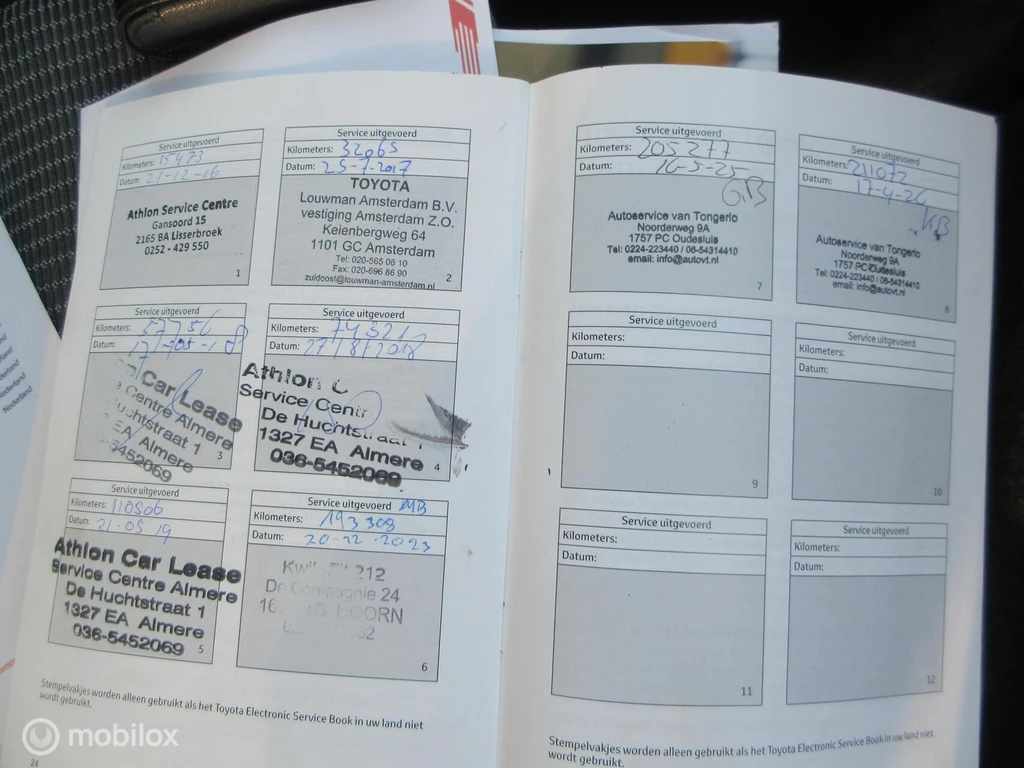 Service uitgevoerd
Kilometers: 15473
Datum: 21-12-16
Athlon Service Centre
Gansoord 15
2165 BA Lisserbroek
0252 - 429 550
1
Service uitgevoerd
Kilometers: 32065
Datum: 25-7-2017
TOYOTA
Louwman Amsterdam B.V.
vestiging Amsterdam Z.O.
Keienbergweg 64
1101 GC Amsterdam
Tel: 020-565 06 10
Fax: 020-696 86 90
zuidoost@louwman-amsterdam.nl
2
Service uitgevoerd
Kilometers: 57756
Datum: 17-05-18
Car Lease
Centre Almere
Huchtstraat 1
EA Almere
5452069
3
Service uitgevoerd
Kilometers: 74321
Datum: 27/8/2018
Athlon C
Service Centr
De Huchtstraat 1
1327 EA Almere
036-5452069
4
Service uitgevoerd
Kilometers: 110506
Datum: 21-05-19
Athlon Car Lease
Service Centre Almere
De Huchtstraat 1
1327 EA Almere
036-5452069
5
Service uitgevoerd MB
Kilometers: 193308
Datum: 20-12-2023
212
De Compagnie 24
HOORN
6
Stempelvakjes worden alleen gebruikt als het Toyota Electronic Service Book in uw land niet
wordt gebruikt.
24
Service uitgevoerd
Kilometers: 205277
Datum: 16-5-25
GB
Autoservice van Tongerlo
Noorderweg 9A
1757 PC Oudesluis
Tel: 0224-223440 / 06-54314410
email: info@autovt.nl
7
Service uitgevoerd
Kilometers: 211072
Datum: 17-4-26
KB
Autoservice van Tongerlo
Noorderweg 9A
1757 PC Oudesluis
Tel: 0224-223440 / 06-54314410
email: info@autovt.nl
8
Service uitgevoerd
Kilometers:
Datum:
9
Service uitgevoerd
Kilometers:
Datum:
10
Service uitgevoerd
Kilometers:
Datum:
11
Service uitgevoerd
Kilometers:
Datum:
12
Stempelvakjes worden alleen gebruikt als het Toyota Electronic Service Book in uw land niet
wordt gebruikt.
Nederland
mobilox